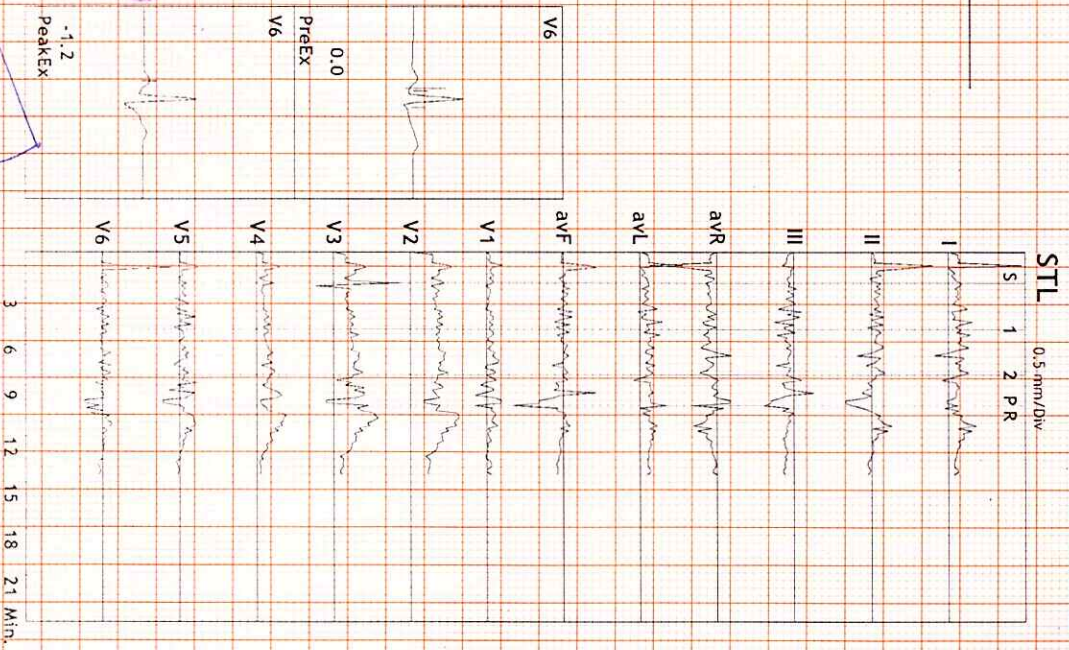 STL 0.5 mm/Div
S 1 2 P R
I
II
III
avR
avL
avF
V1
V2
V3
V4
V5
V6
3 6 9 12 15 18 21 Min.
V6
0.0
PreEx
V6
-1.2
PeakEx